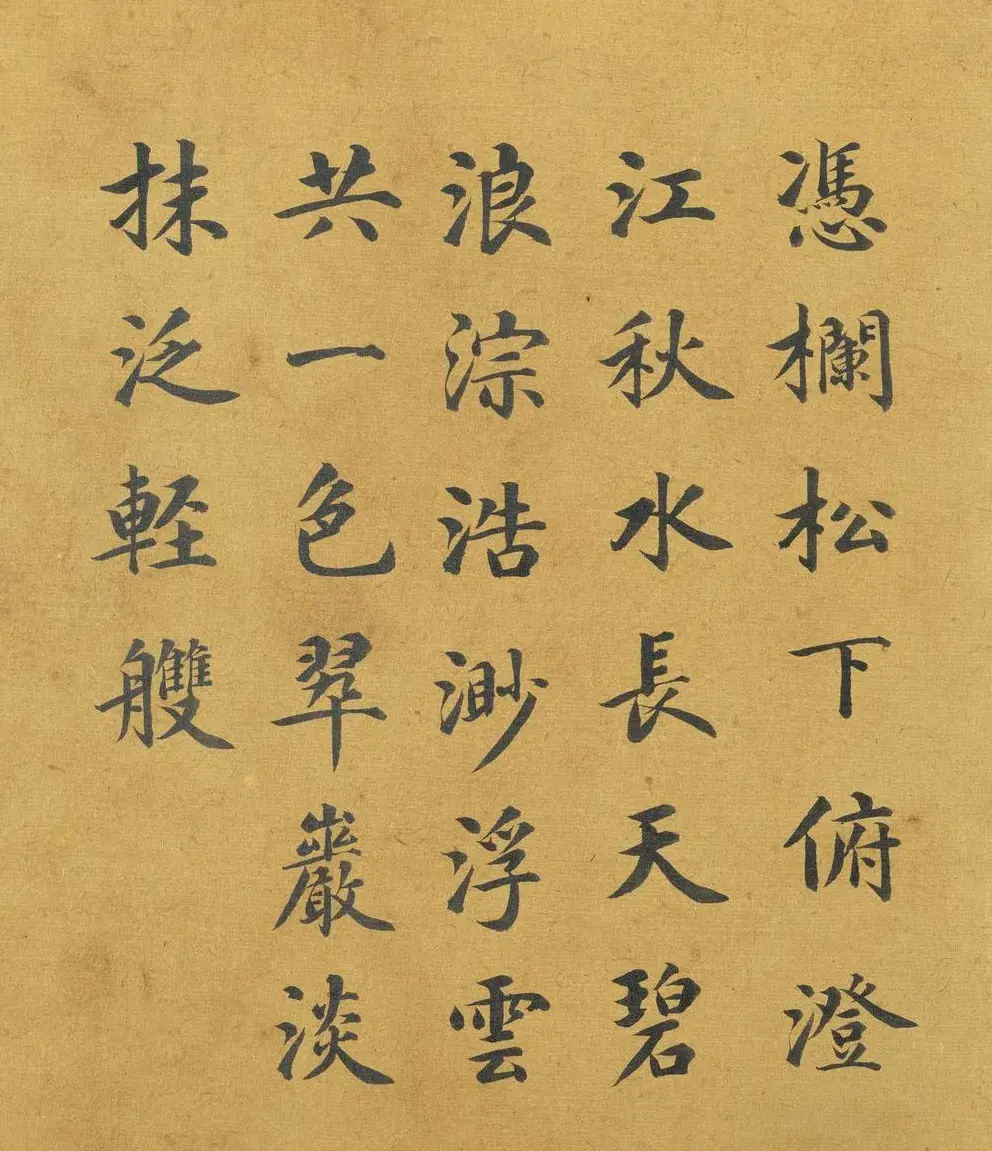 憑欄松下俯澄
江秋水長天碧
浪淙浩渺浮雲
共一色翠巖淡
抹泛軽艭